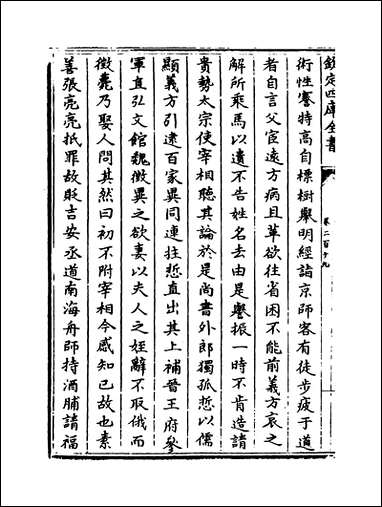 欽定四庫全書
卷二百十九
術性謇特高自標樹舉明經詣京師客有徒步疲于道
者自言父宦遠方病且革欲往省困不能前義方哀之
解所乘馬以遺不告姓名去由是譽振一時不肯造請
貴勢太宗使宰相聽其論於是尚書外郎獨孤悊以儒
顯義方引逮百家異同連拄悊直出其上補晉王府參
軍直弘文館魏徴異之欲妻以夫人之姪辭不取俄而
徴薨乃娶人問其然曰初不附宰相今感知已故也素
善張亮亮抵罪故貶吉安丞道南海舟師持酒脯請福